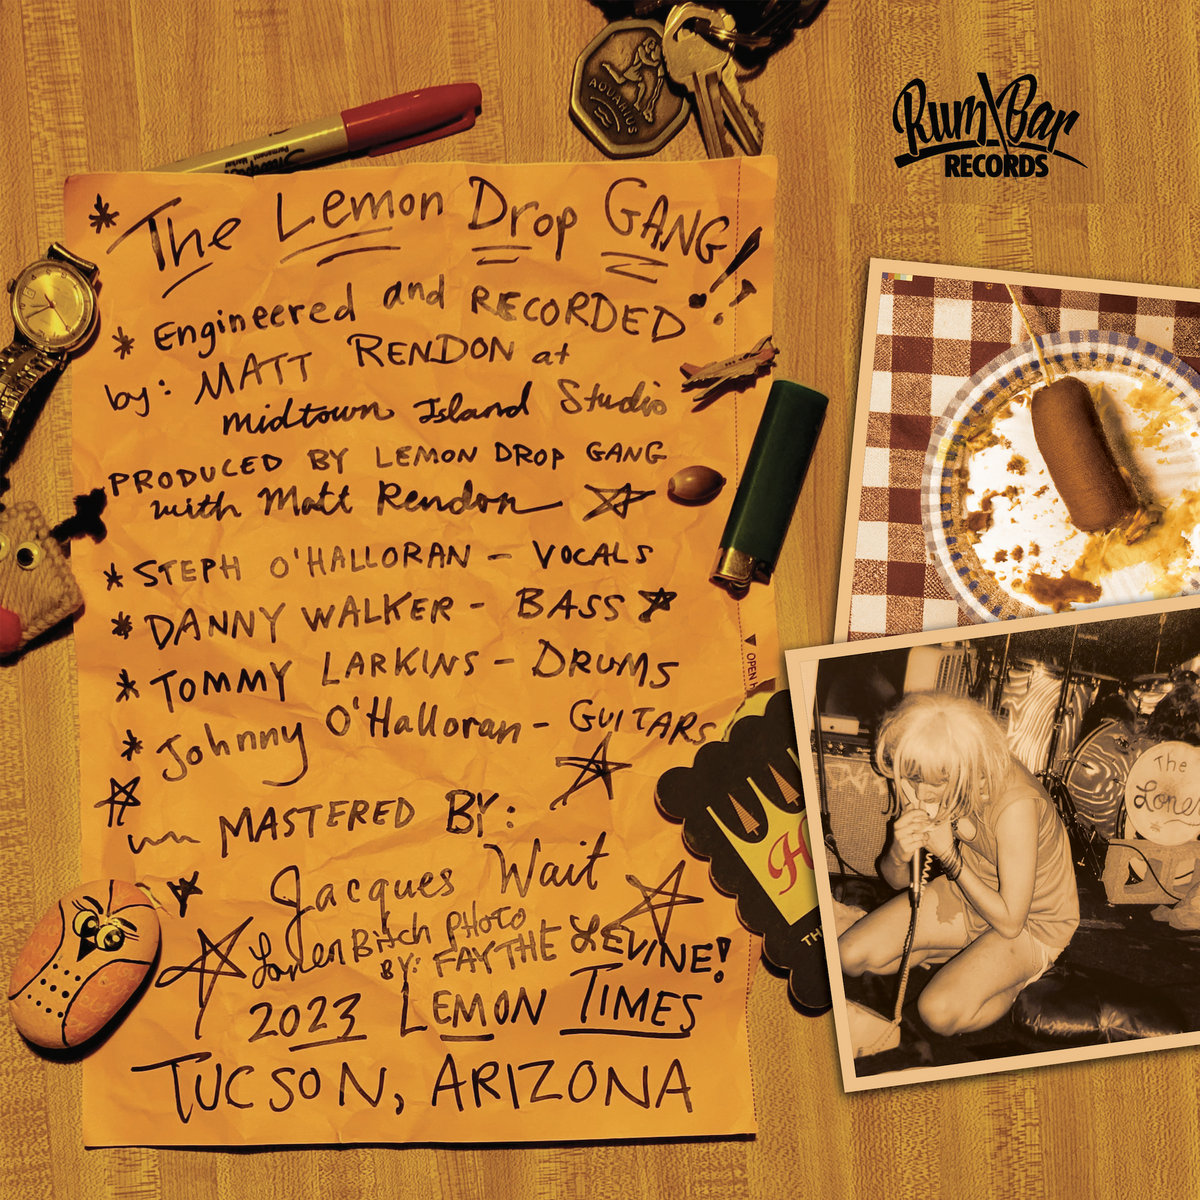 AQUARIUS
Sharpie
Permanent Marker
Rum Bar
RECORDS
* The Lemon Drop GANG!!
* Engineered and RECORDED
by: MATT RENDON at
midtown Island Studio
PRODUCED BY LEMON DROP GANG
with Matt Rendon
* STEPH O'HALLORAN - VOCALS
* DANNY WALKER - BASS
* TOMMY LARKINS - DRUMS
* Johnny O'Halloran - GUITARS
MASTERED BY:
Jacques Wait
Loren Bitch PHOTO
BY: FAYTHE LEVINE!
2023 LEMON TIMES
TUCSON, ARIZONA
OPEN
H
TH
The
Lones